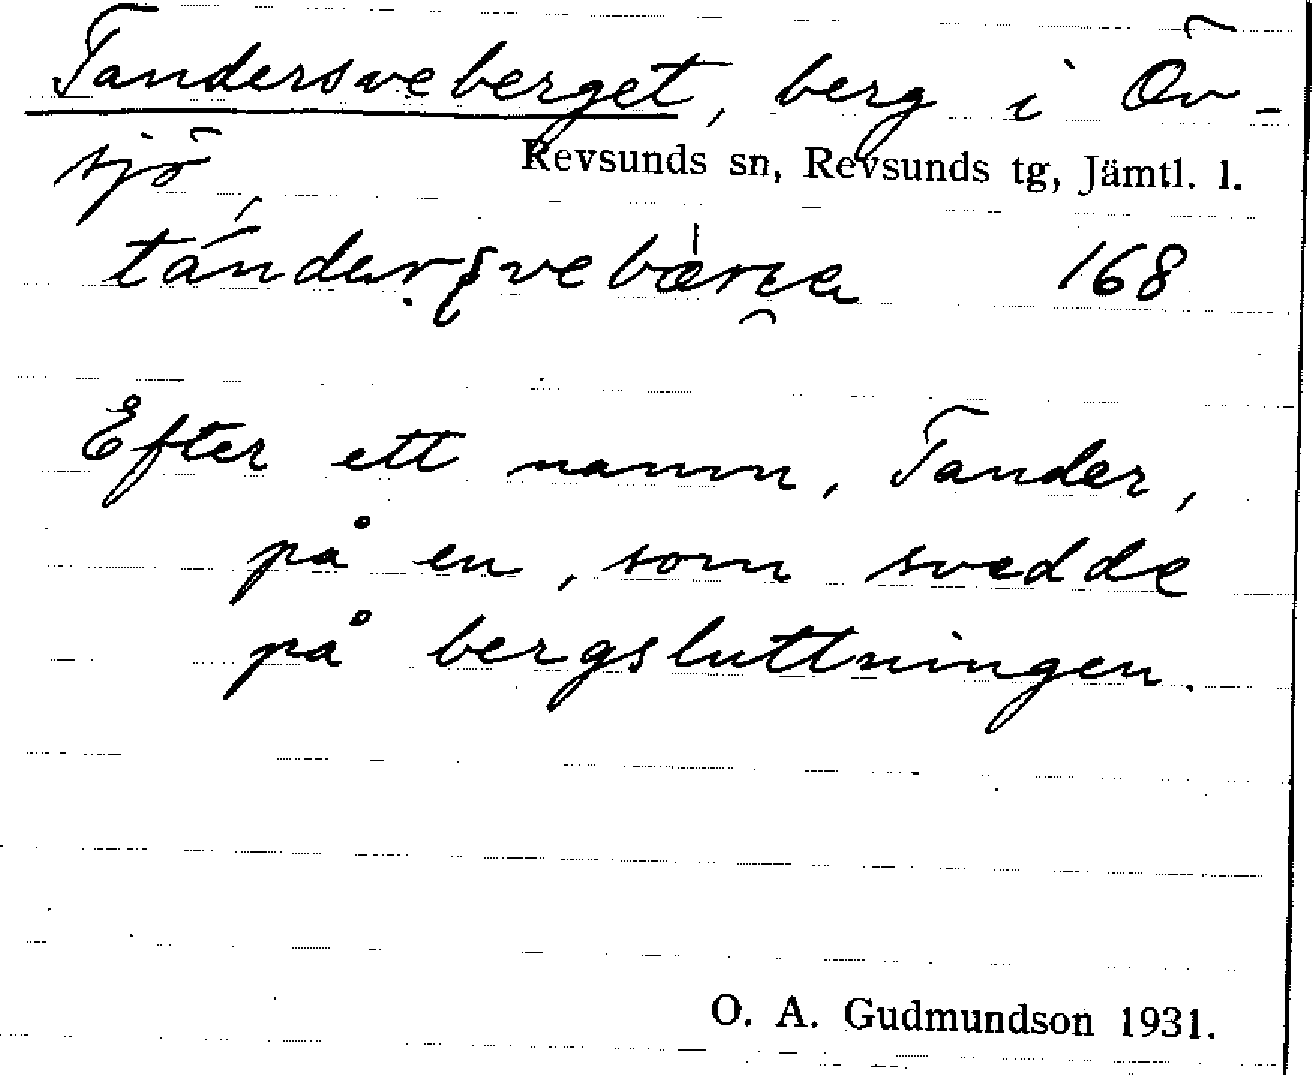 Tandersveberget, berg i Öv-
sjö,
Revsunds sn, Revsunds tg, Jämtl. l.
168
Efter ett namn, Tander,
på en, som svedde
på bergsluttningen.
O. A. Gudmundson 1931.